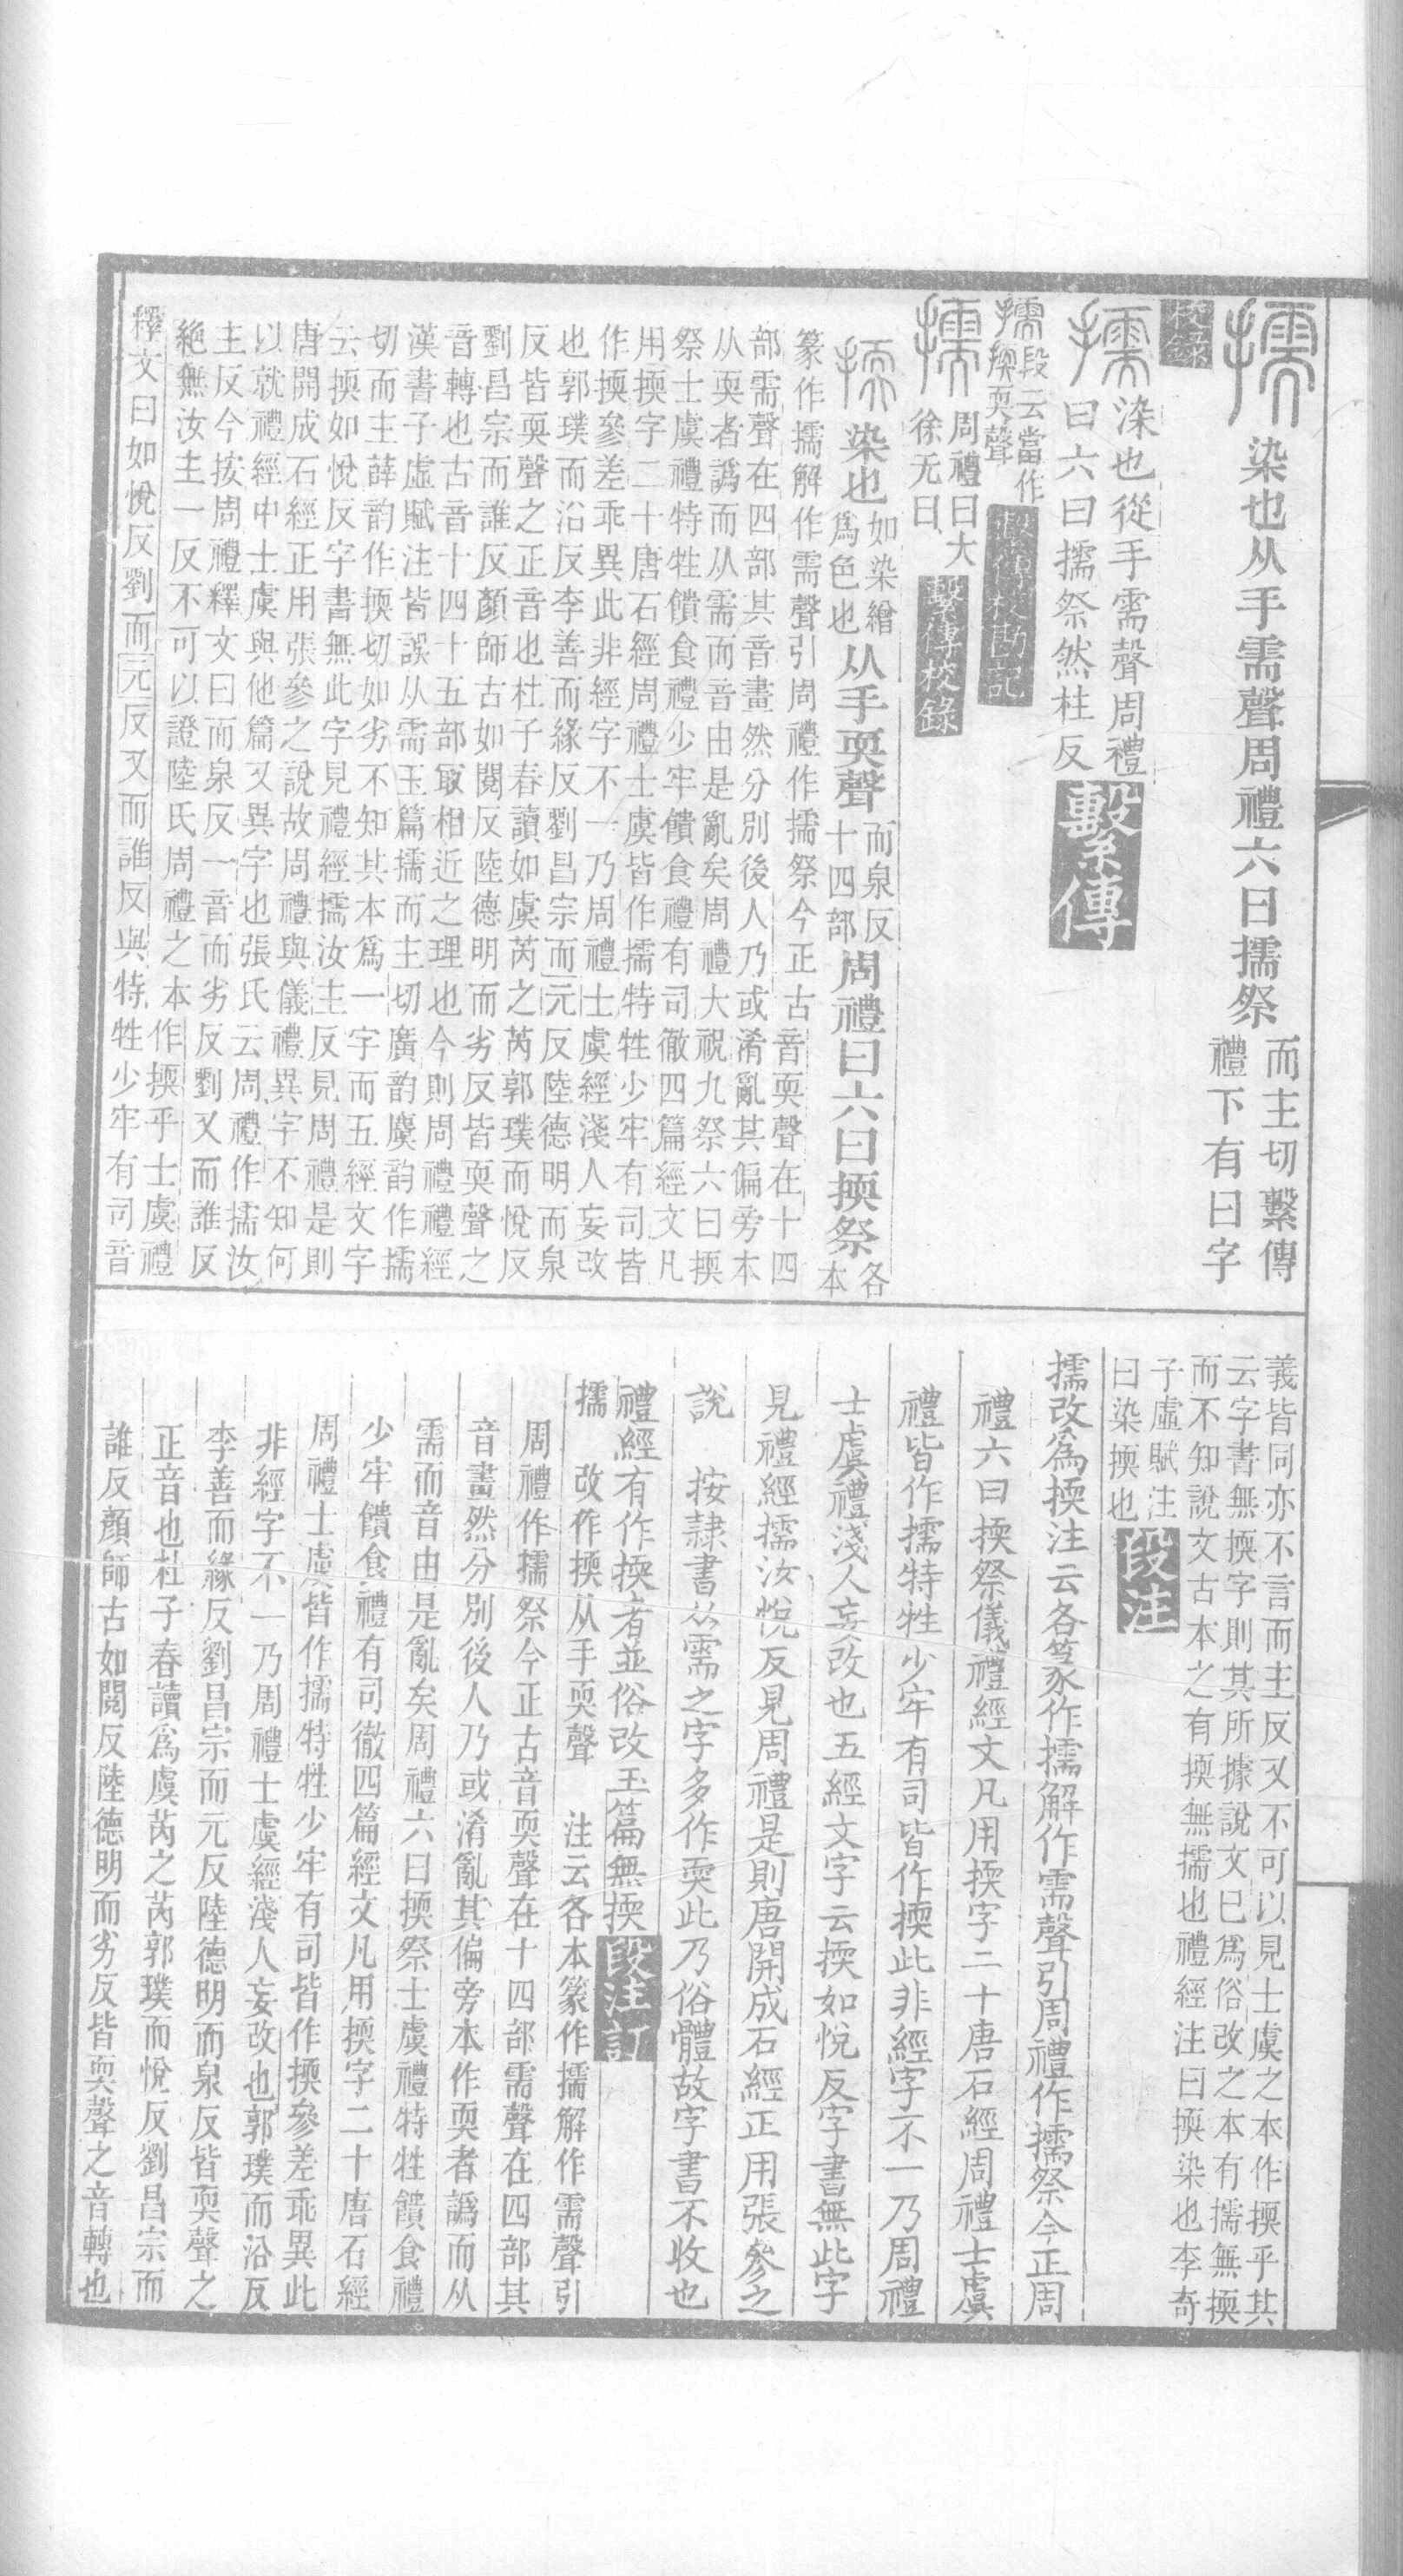 擩 染也从手需聲周禮六曰擩祭 而主切繫傳
禮下有曰字
校錄
擩 染也從手需聲周禮
曰六曰擩祭然柱反 繫傳
擩 段云當作
㨎耎聲 繫傳校勘記
擩 周禮曰大
徐无曰 繫傳校錄
㨎 染也 如染繒
爲色也 从手耎聲 而泉反
十四部 周禮曰六曰㨎祭 各
本
篆作擩解作需聲引周禮作擩祭今正古音耎聲在十四
部需聲在四部其音畫然分別後人乃或淆亂其偏旁本
从耎者譌而从需而音由是亂矣周禮大祝九祭六曰㨎
祭士虞禮特牲饋食禮少牢饋食禮有司徹四篇經文凡
用㨎字二十唐石經周禮士虞皆作擩特牲少牢有司皆
作㨎參差乖異此非經字不一乃周禮士虞經淺人妄改
也郭璞而沿反李善而緣反劉昌宗而元反陸德明而泉
反皆耎聲之正音也杜子春讀如虞芮之芮郭璞而悅反
劉昌宗而誰反顏師古如閱反陸德明而劣反皆耎聲之
音轉也古音十四十五部㝡相近之理也今則周禮禮經
漢書子虛賦注皆誤从需玉篇擩而主切廣韵麌韵作擩
切而主薛韵作㨎切如劣不知其本爲一字而五經文字
云㨎如悅反字書無此字見禮經擩汝主反見周禮是則
唐開成石經正用張參之說故周禮與儀禮異字不知何
以就禮經中士虞與他篇又異字也張氏云周禮作擩汝
主反今按周禮釋文曰而泉反一音而劣反劉又而誰反
絶無汝主一反不可以證陸氏周禮之本作㨎乎士虞禮
釋文曰如悅反劉而元反又而誰反與特牲少牢有司音
義皆同亦不言而主反又不可以見士虞之本作㨎乎其
云字書無㨎字則其所據說文已爲俗改之本有擩無㨎
而不知說文古本之有㨎無擩也禮經注曰㨎染也李奇
子虛賦注
曰染㨎也 段注
擩改爲㨎注云各篆作擩解作需聲引周禮作擩祭今正周
禮六曰㨎祭儀禮經文凡用㨎字二十唐石經周禮士虞
禮皆作擩特牲少牢有司皆作㨎此非經字不一乃周禮
士虞禮淺人妄改也五經文字云㨎如悅反字書無此字
見禮經擩汝悅反見周禮是則唐開成石經正用張參之
說 按隷書从需之字多作耎此乃俗體故字書不收也
禮經有作㨎者並俗改玉篇無㨎 段注訂
擩 改作㨎从手耎聲 注云各本篆作擩解作需聲引
周禮作擩祭今正古音耎聲在十四部需聲在四部其
音畫然分別後人乃或淆亂其偏旁本作耎者譌而从
需而音由是亂矣周禮六曰㨎祭士虞禮特牲饋食禮
少牢饋食禮有司徹四篇經文凡用㨎字二十唐石經
周禮士虞皆作擩特牲少牢有司皆作㨎參差乖異此
非經字不一乃周禮士虞經淺人妄改也郭璞而沿反
李善而緣反劉昌宗而元反陸德明而泉反皆耎聲之
正音也杜子春讀爲虞芮之芮郭璞而悅反劉昌宗而
誰反顏師古如閱反陸德明而劣反皆耎聲之音轉也